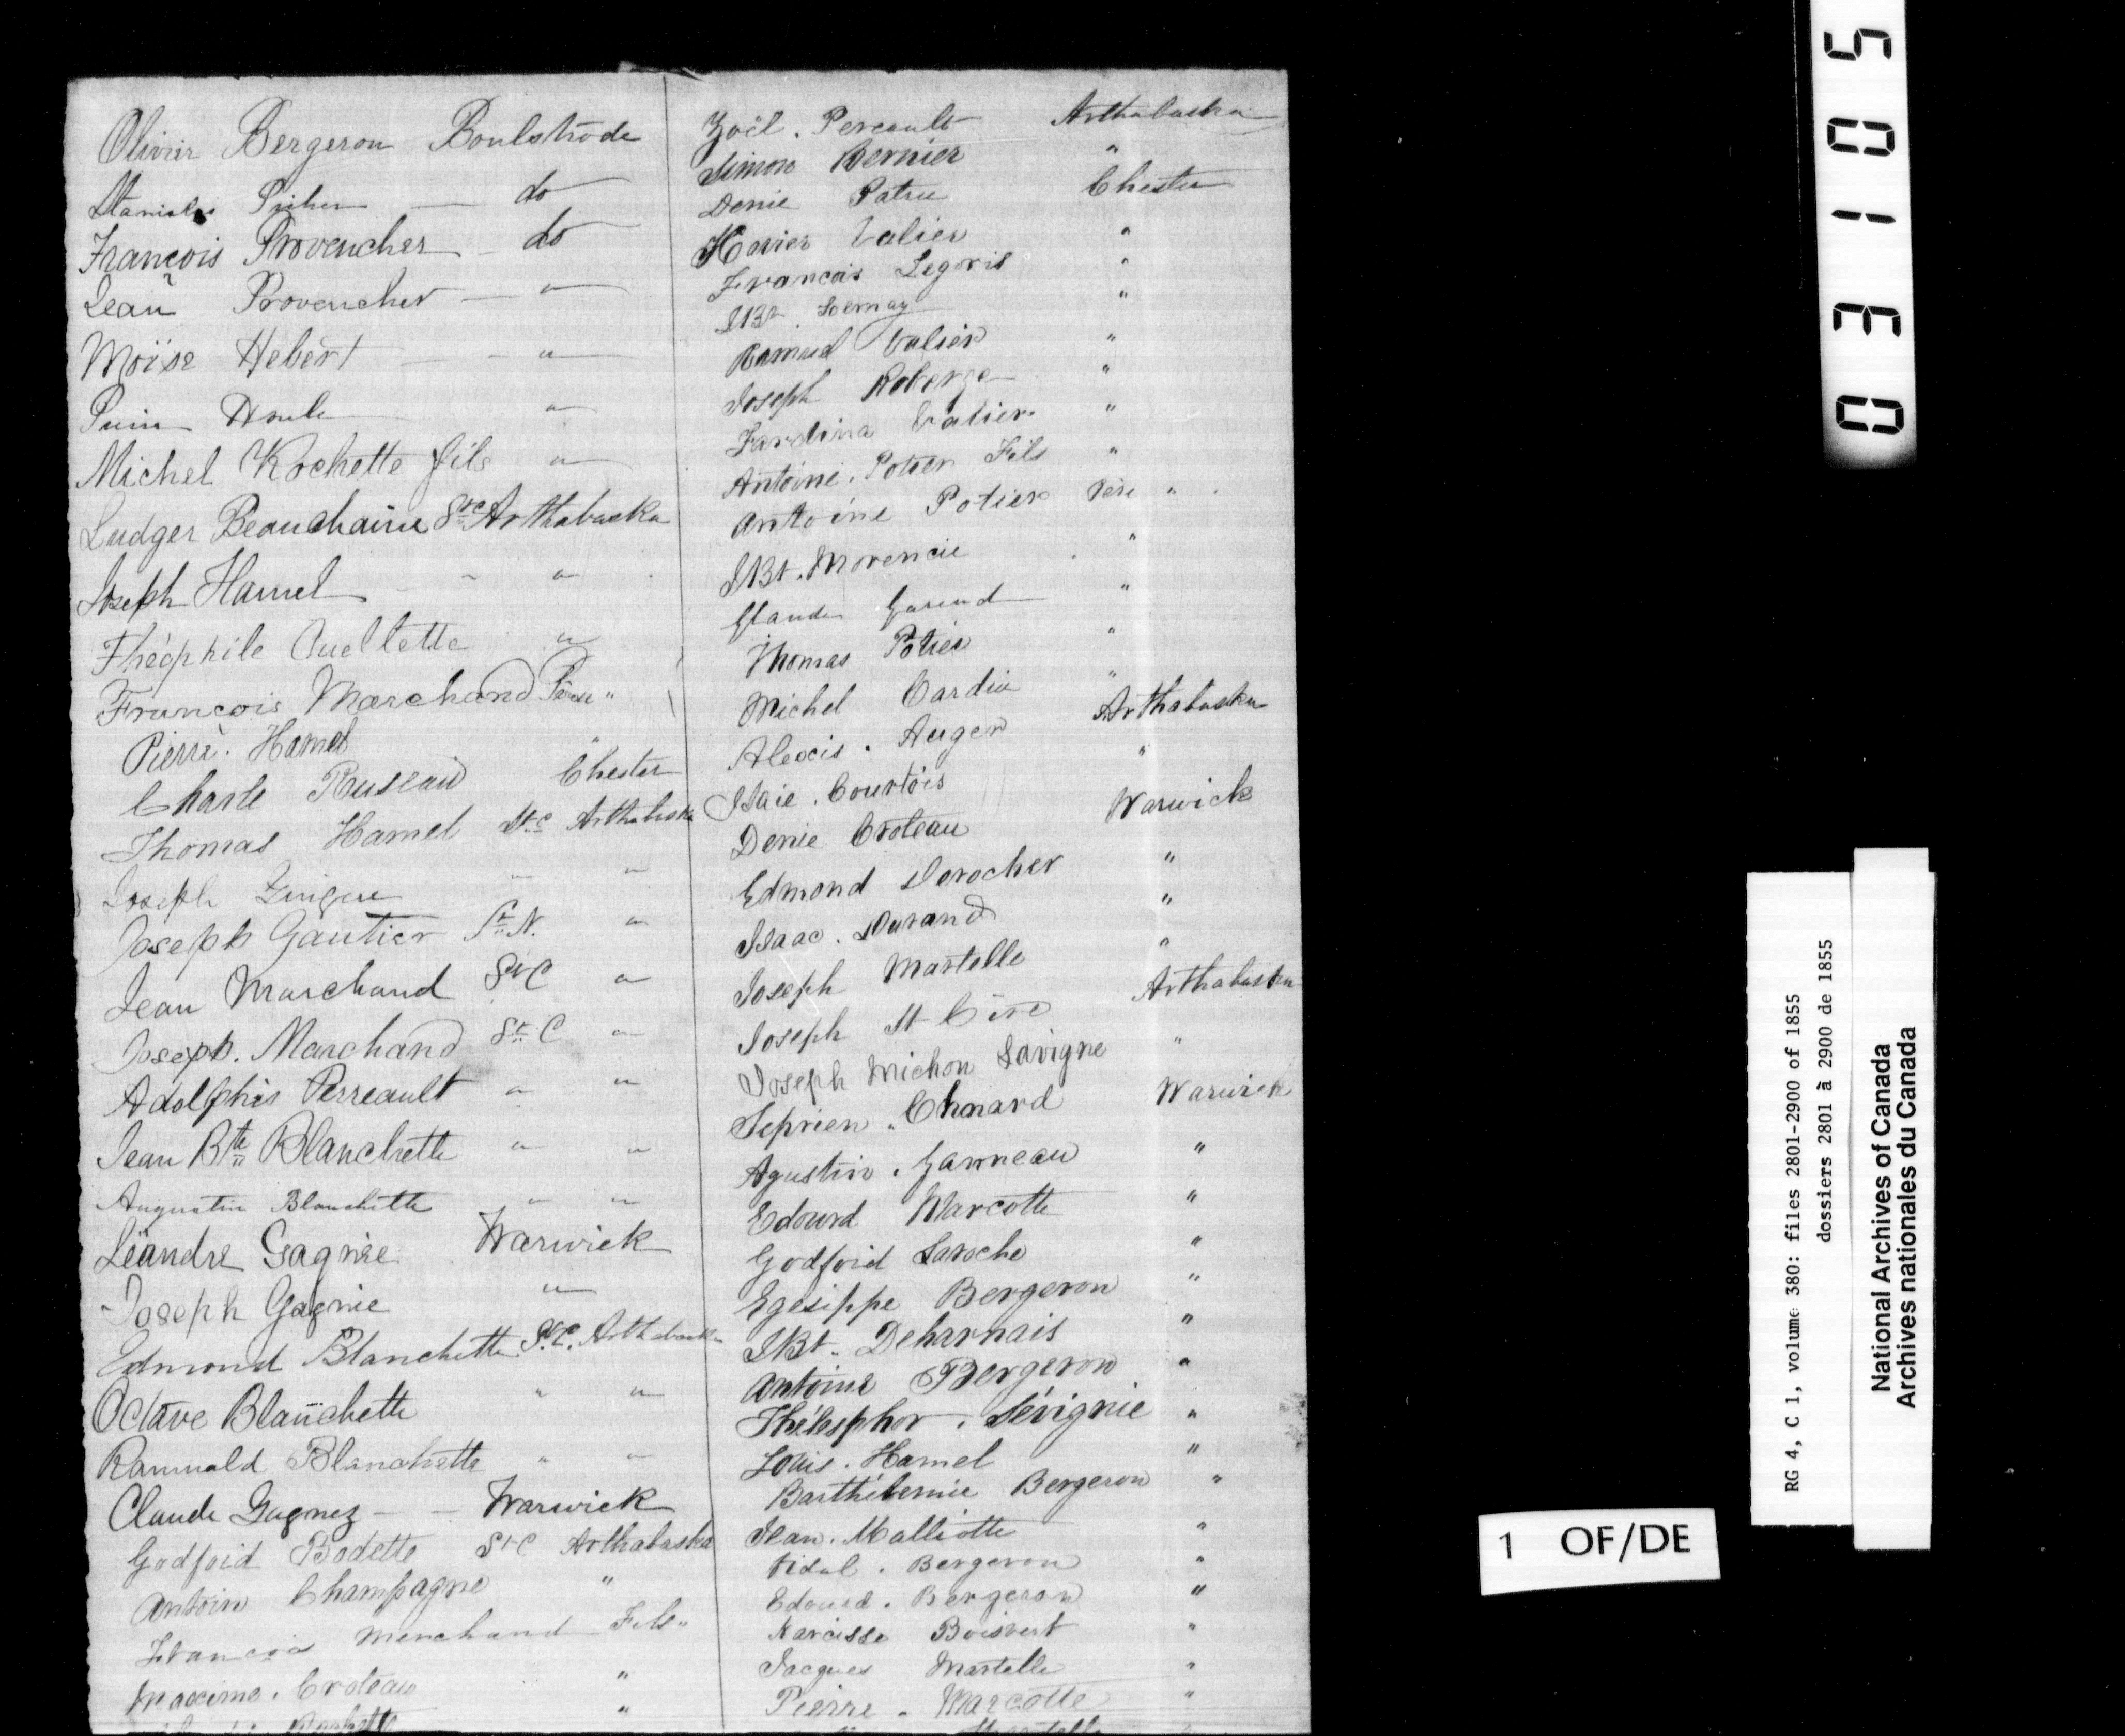 Olivier Bergeron Boulstrode
Stanislas Picher — do
François Provencher — do
Jean Provencher — "
Moïse Hebert — "
Houle "
Michel Rochette fils "
Ludger Beauchaine Stc Arthabaska
Joseph Hamel - "
Théophile Ouellette "
François Marchand Père "
Pierre. Hamel "
Charle Ruseau Chester
Thomas Hamel Stc Arthabaska
Joseph " "
Joseph Gautier St N. "
Jean Marchand St C "
Joseph. Marchand St C "
Adolphis Perreault " "
Jean Bte Blanchette " "
Augustin Blanchette " "
Léandre Gagnie Warwick
Joseph Gagnie "
Edmond Blanchette St.C. Arthabaska
Octave Blanchette " "
Ramuald Blanchette " "
Claude Gagnez - - Warwick
Godfoid Bodette StC Arthabaska
Antoin Champagne "
Francois Merchand Fils "
Maxime. Croteau "
"
Zoël. Pereault Arthabaska
Simon Bernier "
Denie Patru Chester
Xavier Valier "
Francois Legoris "
JBt. Lemay "
Romued Valier "
Joseph Roberge "
Fardina Valier "
Antoine. Potier Fils "
Antoine Potier Père "
JBt. Morencie "
Glaude "
Thomas Potier "
Michel Cardin "
Alexis. Auger Arthabaska
Isaie. Courtois "
Denie Croteau Warwick
Edmond Derocher "
Isaac. Durand "
Joseph Martelle "
Joseph St Cire Arthabaska
Joseph Michon Lavigne "
Seprien. Chenard Warwick
Agustin. Garneau "
Edourd Marcotte "
Godfoid Laroche "
Egesippe Bergeron "
JBt. Deharnais "
Antoine Bergeron "
Thélesphor. Sévignie "
Louis. Hamel "
Barthélemie Bergeron "
Jean. Malliotte "
Vidal. Bergeron "
Edouard. Bergeron "
Narcisse Boisvert "
Jacques Martelle "
Pierre. Marcotte "
Martelle
0 E 1 0 5
RG 4, C 1, volume 380: files 2801-2900 of 1855
dossiers 2801 à 2900 de 1855
National Archives of Canada
Archives nationales du Canada
1 OF/DE